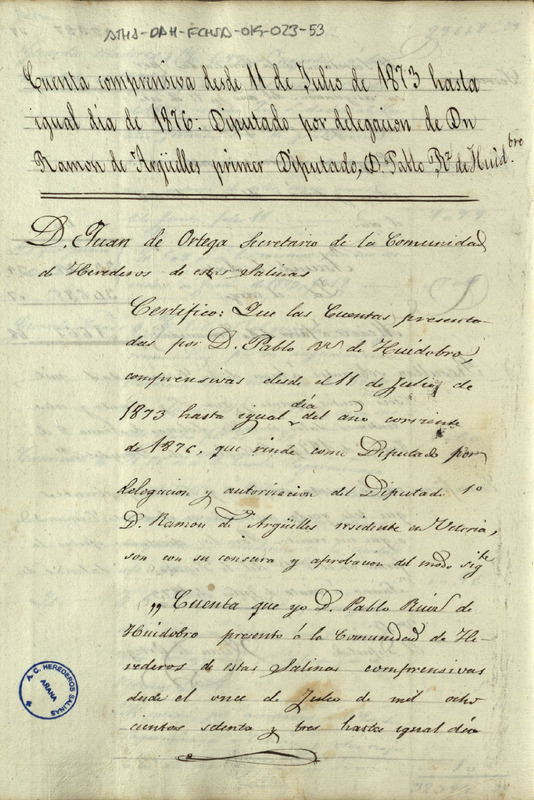 ATHA-DAH-FCHSA-019-023-53
Cuenta comprensiva desde 11 de Julio de 1873 hasta
igual día de 1876: Diputado por delegacion de Dn
Ramon de Argüelles primer Diputado, D. Pablo Rz de Huidbro
D. Juan de Ortega Secretario de la Comunidad
de Herederos de estas Salinas
Certifico: Que las Cuentas presenta-
das por D. Pablo Rz de Huidobro,
comprensivas desde el 11 de Julio de
1873 hasta igual día del año corriente
de 1876, que rinde como Diputado por
delegacion y autorizacion del Diputado 1º
D. Ramon de Argüelles residente en Vitoria,
son con su censura y aprobacion del modo sigte
„ Cuenta que yo D. Pablo Ruiz de
Huidobro presento á la Comunidad de He-
rederos de estas Salinas comprensivas
desde el once de Julio de mil ocho
cientos setenta y tres hasta igual día
A. C. HEREDEROS SALINAS
AÑANA